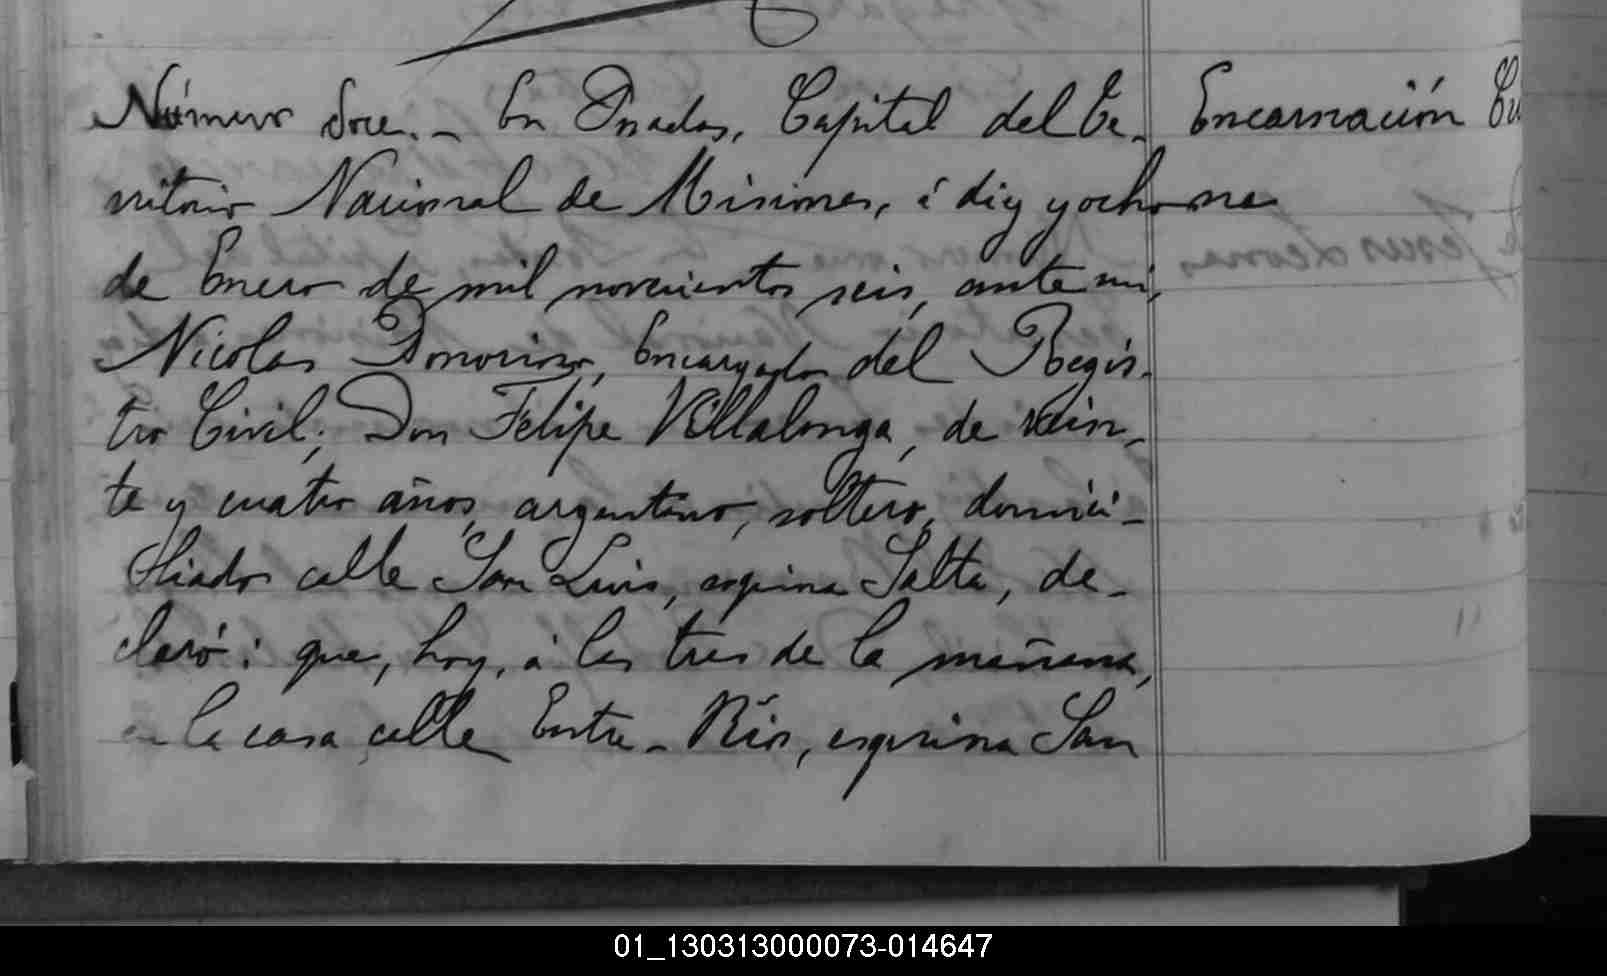 Número doce.- En Posadas, Capital del Te-
rritorio Nacional de Misiones, á diez y ocho
de Enero de mil novecientos seis, ante mi,
Nicolas Encargado del Regis-
tro Civil; Don Felipe Villalonga, de vein-
te y cuatro años, argentino, soltero, domici-
liado calle San Luis, esquina Salta, de-
claró: que, hoy, á las tres de la mañana,
en la casa calle Entre-Rios, esquina San
Encarnación
01_130313000073-014647